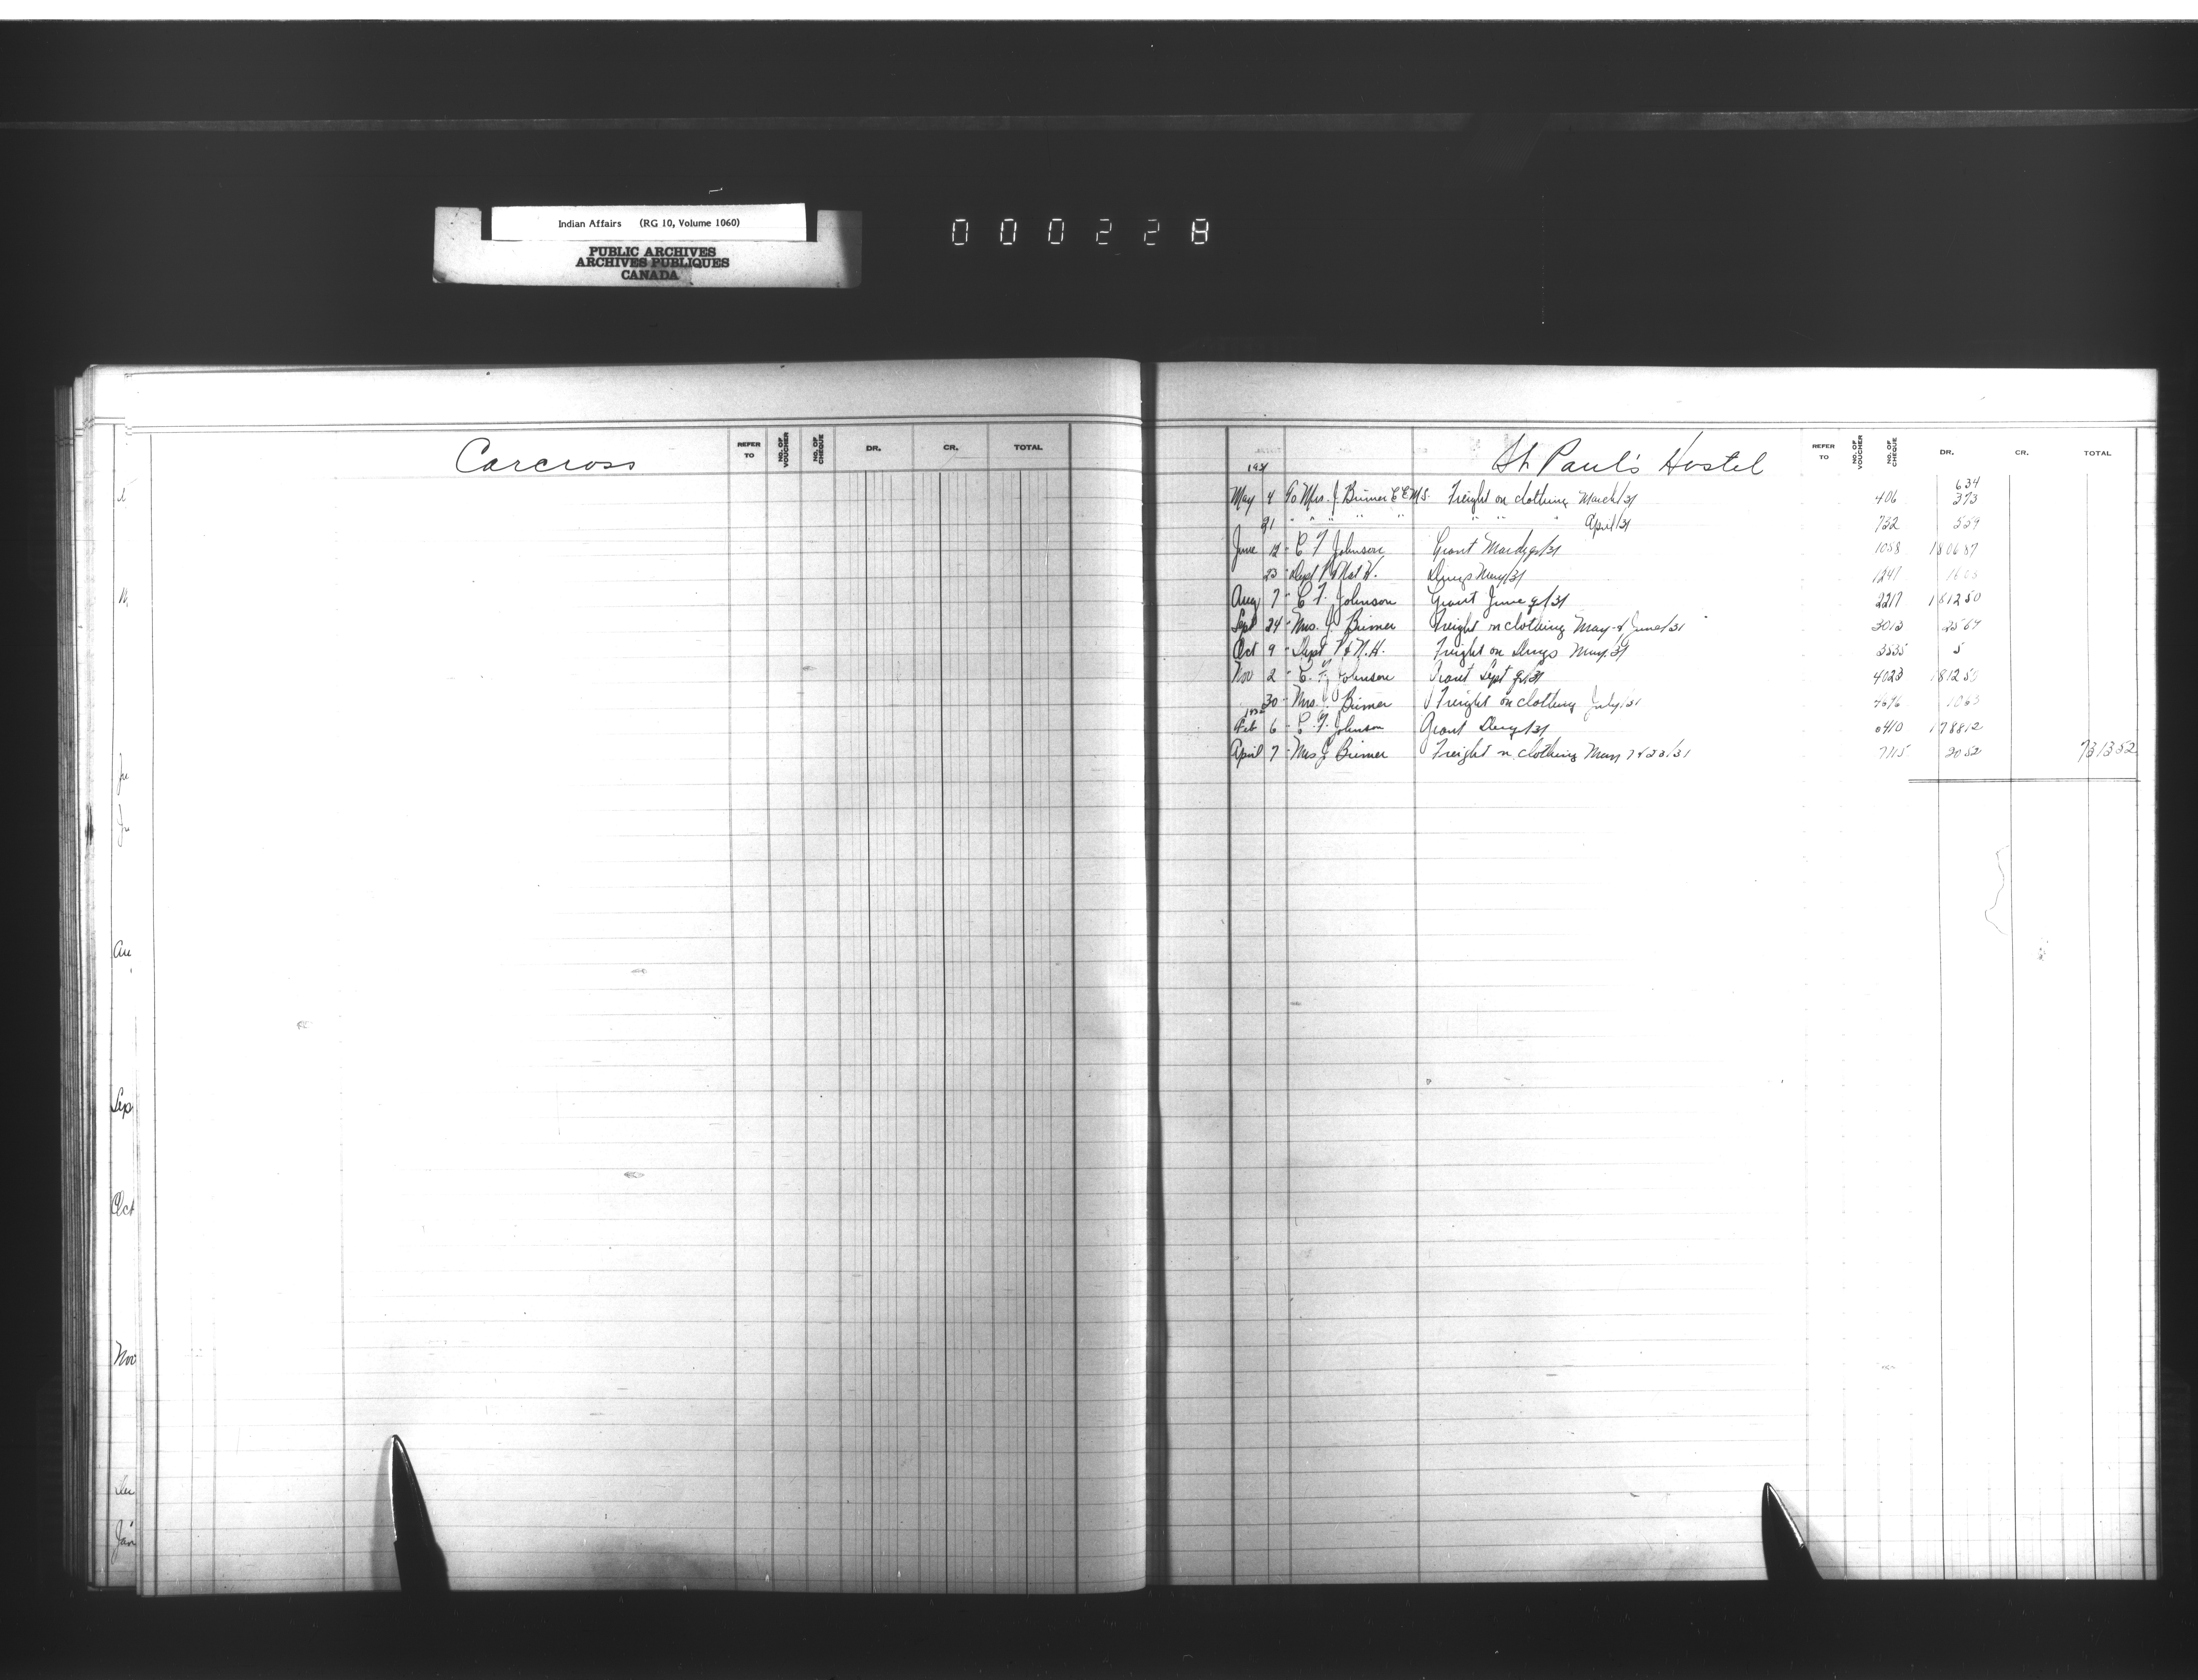 Indian Affairs (RG 10, Volume 1060)
PUBLIC ARCHIVES
ARCHIVES PUBLIQUES
CANADA
000228
Carcross
REFER TO NO. OF VOUCHER NO. OF CHEQUE DR. CR. TOTAL
Au
Sep
Oct
Nov
Jan
St. Paul's Hostel
REFER TO NO. OF VOUCHER NO. OF CHEQUE DR. CR. TOTAL
1931
634
May 4 To Mrs. J. Brimer Freight on clothing March/31 406 373
21 " " " " " " " " April/31 732 559
June 12 - C F Johnson Grant March q/31 1058 1806 87
23 - Dept P & Nat H. Drugs May/31 1241
Aug 7 - C F. Johnson Grant June q/31 2217 1812 50
Sept 24 - Mrs. J. Brimer Freight on clothing May & June/31 3013 25 67
Oct 9 - Dept P & N.H. Freight on Drugs May/31 3535 5
Nov 2 - C. F. Johnson Grant Sept q/31 4023 1812 50
30 - Mrs. J. Brimer Freight on clothing July/31 4696 10 63
1932
Feb 6 - C. F. Johnson Grant Dec q/31 1788 12
April 7 - Mrs J Brimer Freight on clothing 7115 20 52 7313 52